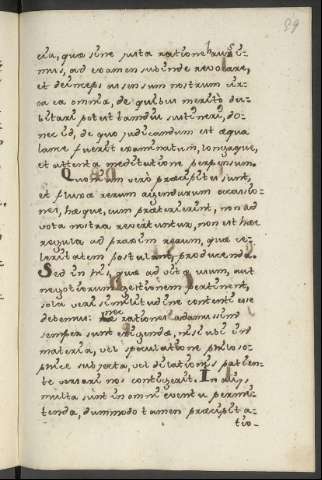 99
era, quæ sine justa ratione haussi-
mus, ad examen subinde revocare,
et deinceps assensum nostrum cir-
ca ea omnia, de quibus merito du-
bitari potest tamdiu sustinere, do-
nec id, de quo judicandum est æqua
lance fuerit examinatum, longaque,
et attenta meditatione perpensum.
Quoniam vero præcipites sunt,
et fluxæ rerum agendarum occasio-
nes, hæque, cum præterierint, non ad
vota nostra revertuntur, non est hæc
regula ad praxim rerum, quæ ce-
leritatem postulant, producenda.
Sed in his, quæ ad vitæ usum, aut
negotiorum pertinent,
sola veri similitudine contenti esse
debemus: Nec rationes adamussim
semper sunt exigendæ, nisi ubi in
materia, vel speculatione philoso-
phice subjecta, vel dilationis patien-
te versari nos contigerit. In aliis
multa sunt in omni eventu permit-
tenda, dummodo tamen præcipita-
tio-